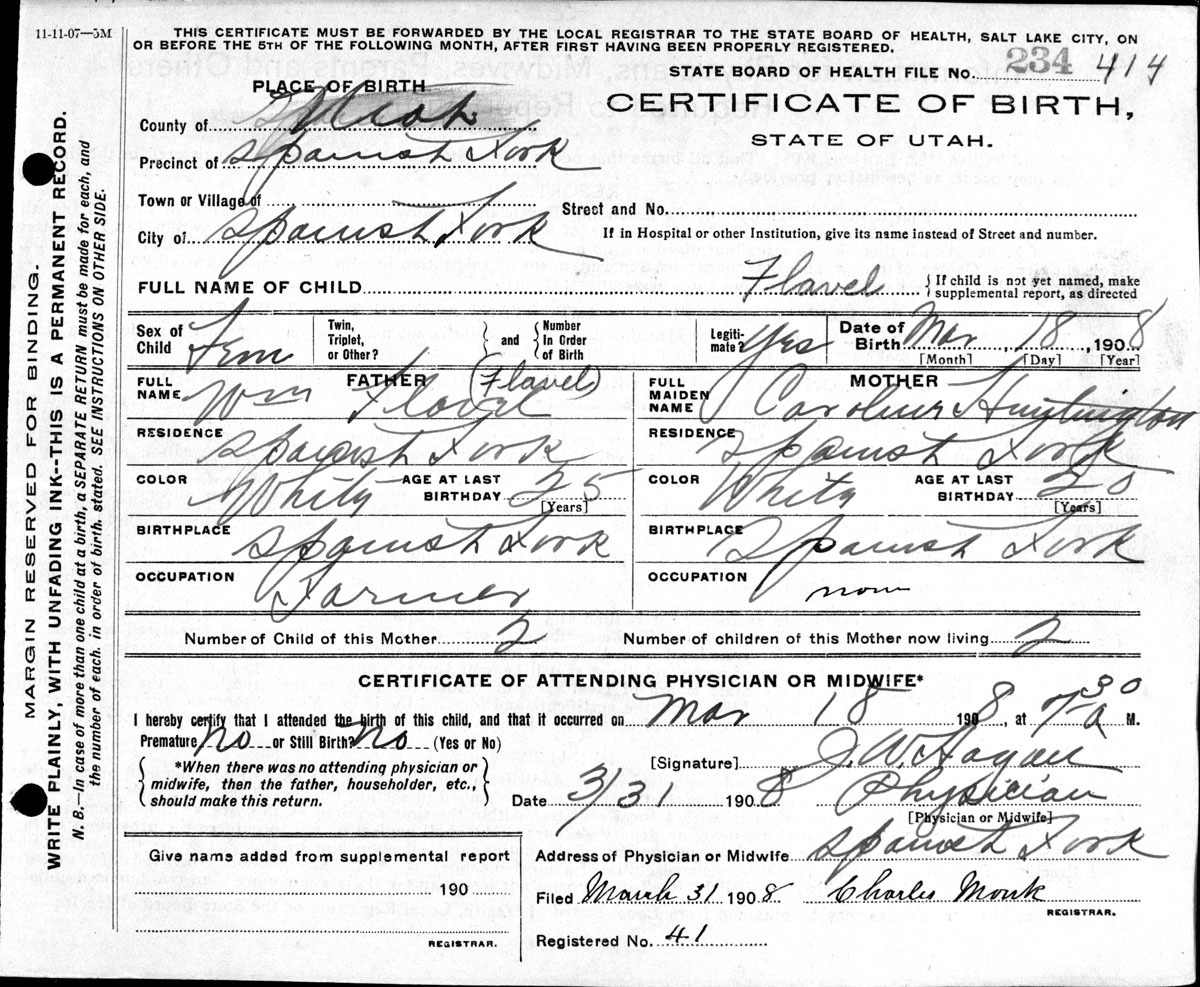 11-11-07—5M
THIS CERTIFICATE MUST BE FORWARDED BY THE LOCAL REGISTRAR TO THE STATE BOARD OF HEALTH, SALT LAKE CITY, ON
OR BEFORE THE 5TH OF THE FOLLOWING MONTH, AFTER FIRST HAVING BEEN PROPERLY REGISTERED.
STATE BOARD OF HEALTH FILE No. 234 414
PLACE OF BIRTH
CERTIFICATE OF BIRTH,
STATE OF UTAH.
County of Utah
Precinct of Spanish Fork
Town or Village of
Street and No.
City of Spanish Fork
If in Hospital or other Institution, give its name instead of Street and number.
FULL NAME OF CHILD Flavel
If child is not yet named, make
supplemental report, as directed
Sex of
Child Fem
Twin,
Triplet,
or Other?
and
Number
In Order
of Birth
Legiti-
mate? Yes
Date of
Birth Mar 18, 1908
[Month] [Day] [Year]
FATHER
FULL
NAME Wm Flavel (Flavel)
RESIDENCE Spanish Fork
COLOR White AGE AT LAST
BIRTHDAY 25
[Years]
BIRTHPLACE Spanish Fork
OCCUPATION Farmer
MOTHER
FULL
MAIDEN
NAME Caroline Huntington
RESIDENCE Spanish Fork
COLOR White AGE AT LAST
BIRTHDAY 20
[Years]
BIRTHPLACE Spanish Fork
OCCUPATION none
Number of Child of this Mother 2
Number of children of this Mother now living 2
CERTIFICATE OF ATTENDING PHYSICIAN OR MIDWIFE*
I hereby certify that I attended the birth of this child, and that it occurred on Mar 18 1908, at 7-30 a M.
Premature no or Still Birth? no (Yes or No)
*When there was no attending physician or
midwife, then the father, householder, etc.,
should make this return.
[Signature] J. W. Hagan
Date 3/31 1908 Physician
[Physician or Midwife]
Give name added from supplemental report
190
REGISTRAR.
Address of Physician or Midwife Spanish Fork
Filed March 31 1908 Charles Monk
REGISTRAR.
Registered No. 41
MARGIN RESERVED FOR BINDING.
WRITE PLAINLY, WITH UNFADING INK--THIS IS A PERMANENT RECORD.
N. B.—In case of more than one child at a birth, a SEPARATE RETURN must be made for each, and
the number of each, in order of birth, stated. SEE INSTRUCTIONS ON OTHER SIDE.